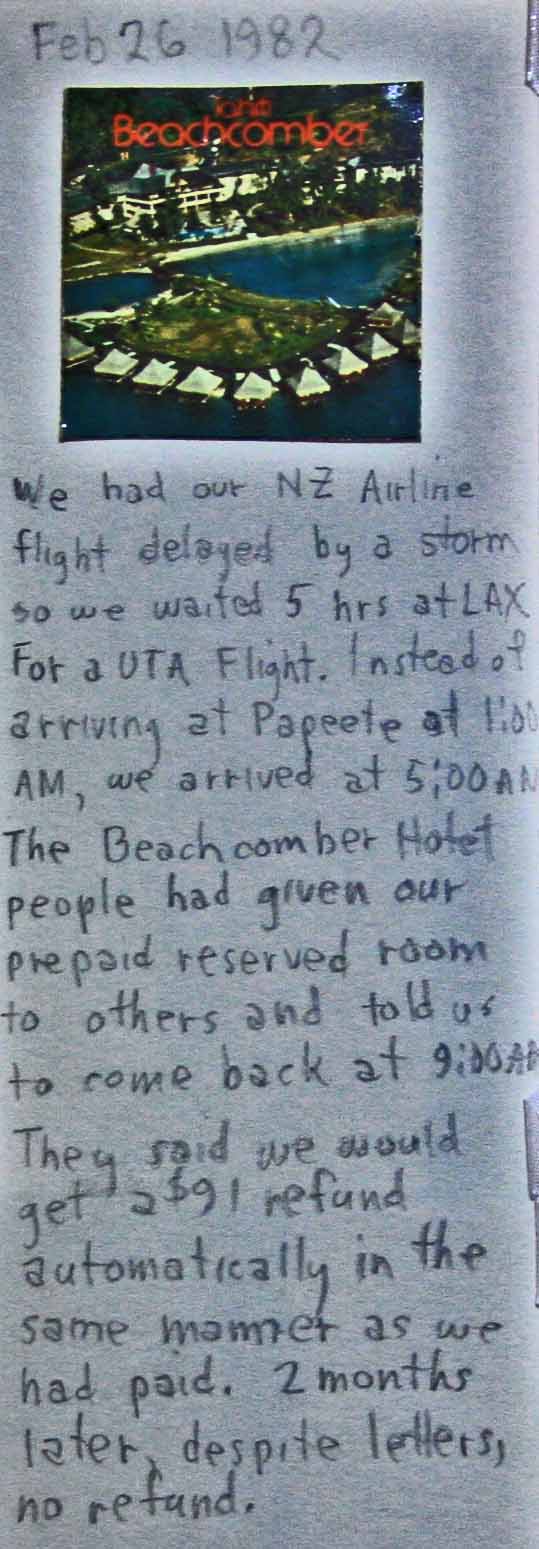 Feb 26 1982
Tahiti
Beachcomber
We had our NZ Airline
flight delayed by a storm
so we waited 5 hrs at LAX
For a UTA Flight. Instead of
arriving at Papeete at 1:00
AM, we arrived at 5:00 AM
The Beachcomber Hotel
people had given our
prepaid reserved room
to others and told us
to come back at 9:00 AM
They said we would
get a $91 refund
automatically in the
same manner as we
had paid. 2 months
later, despite letters,
no refund.